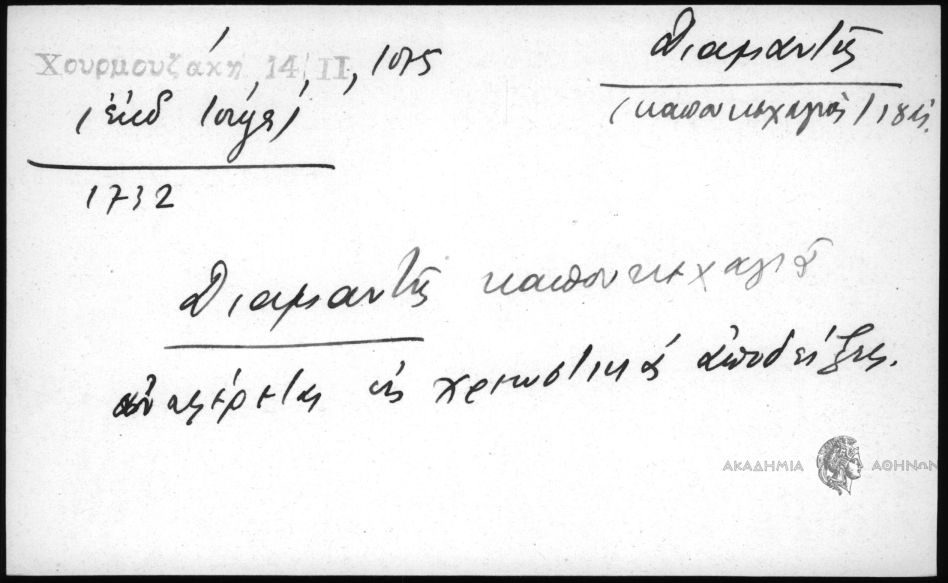 Χουρμουζάκη 14, II, 1075
(ἐκδ Ἰόργα)
1732
Διαμαντῆς
(καπουκεχαγιᾶς) 18ς.
Διαμαντῆς καπουκεχαγιᾶ
ἀναφέρεται εἰς χρεωστικάς ἀποδείξεις.
ΑΚΑΔΗΜΙΑ ΑΘΗΝΩΝ